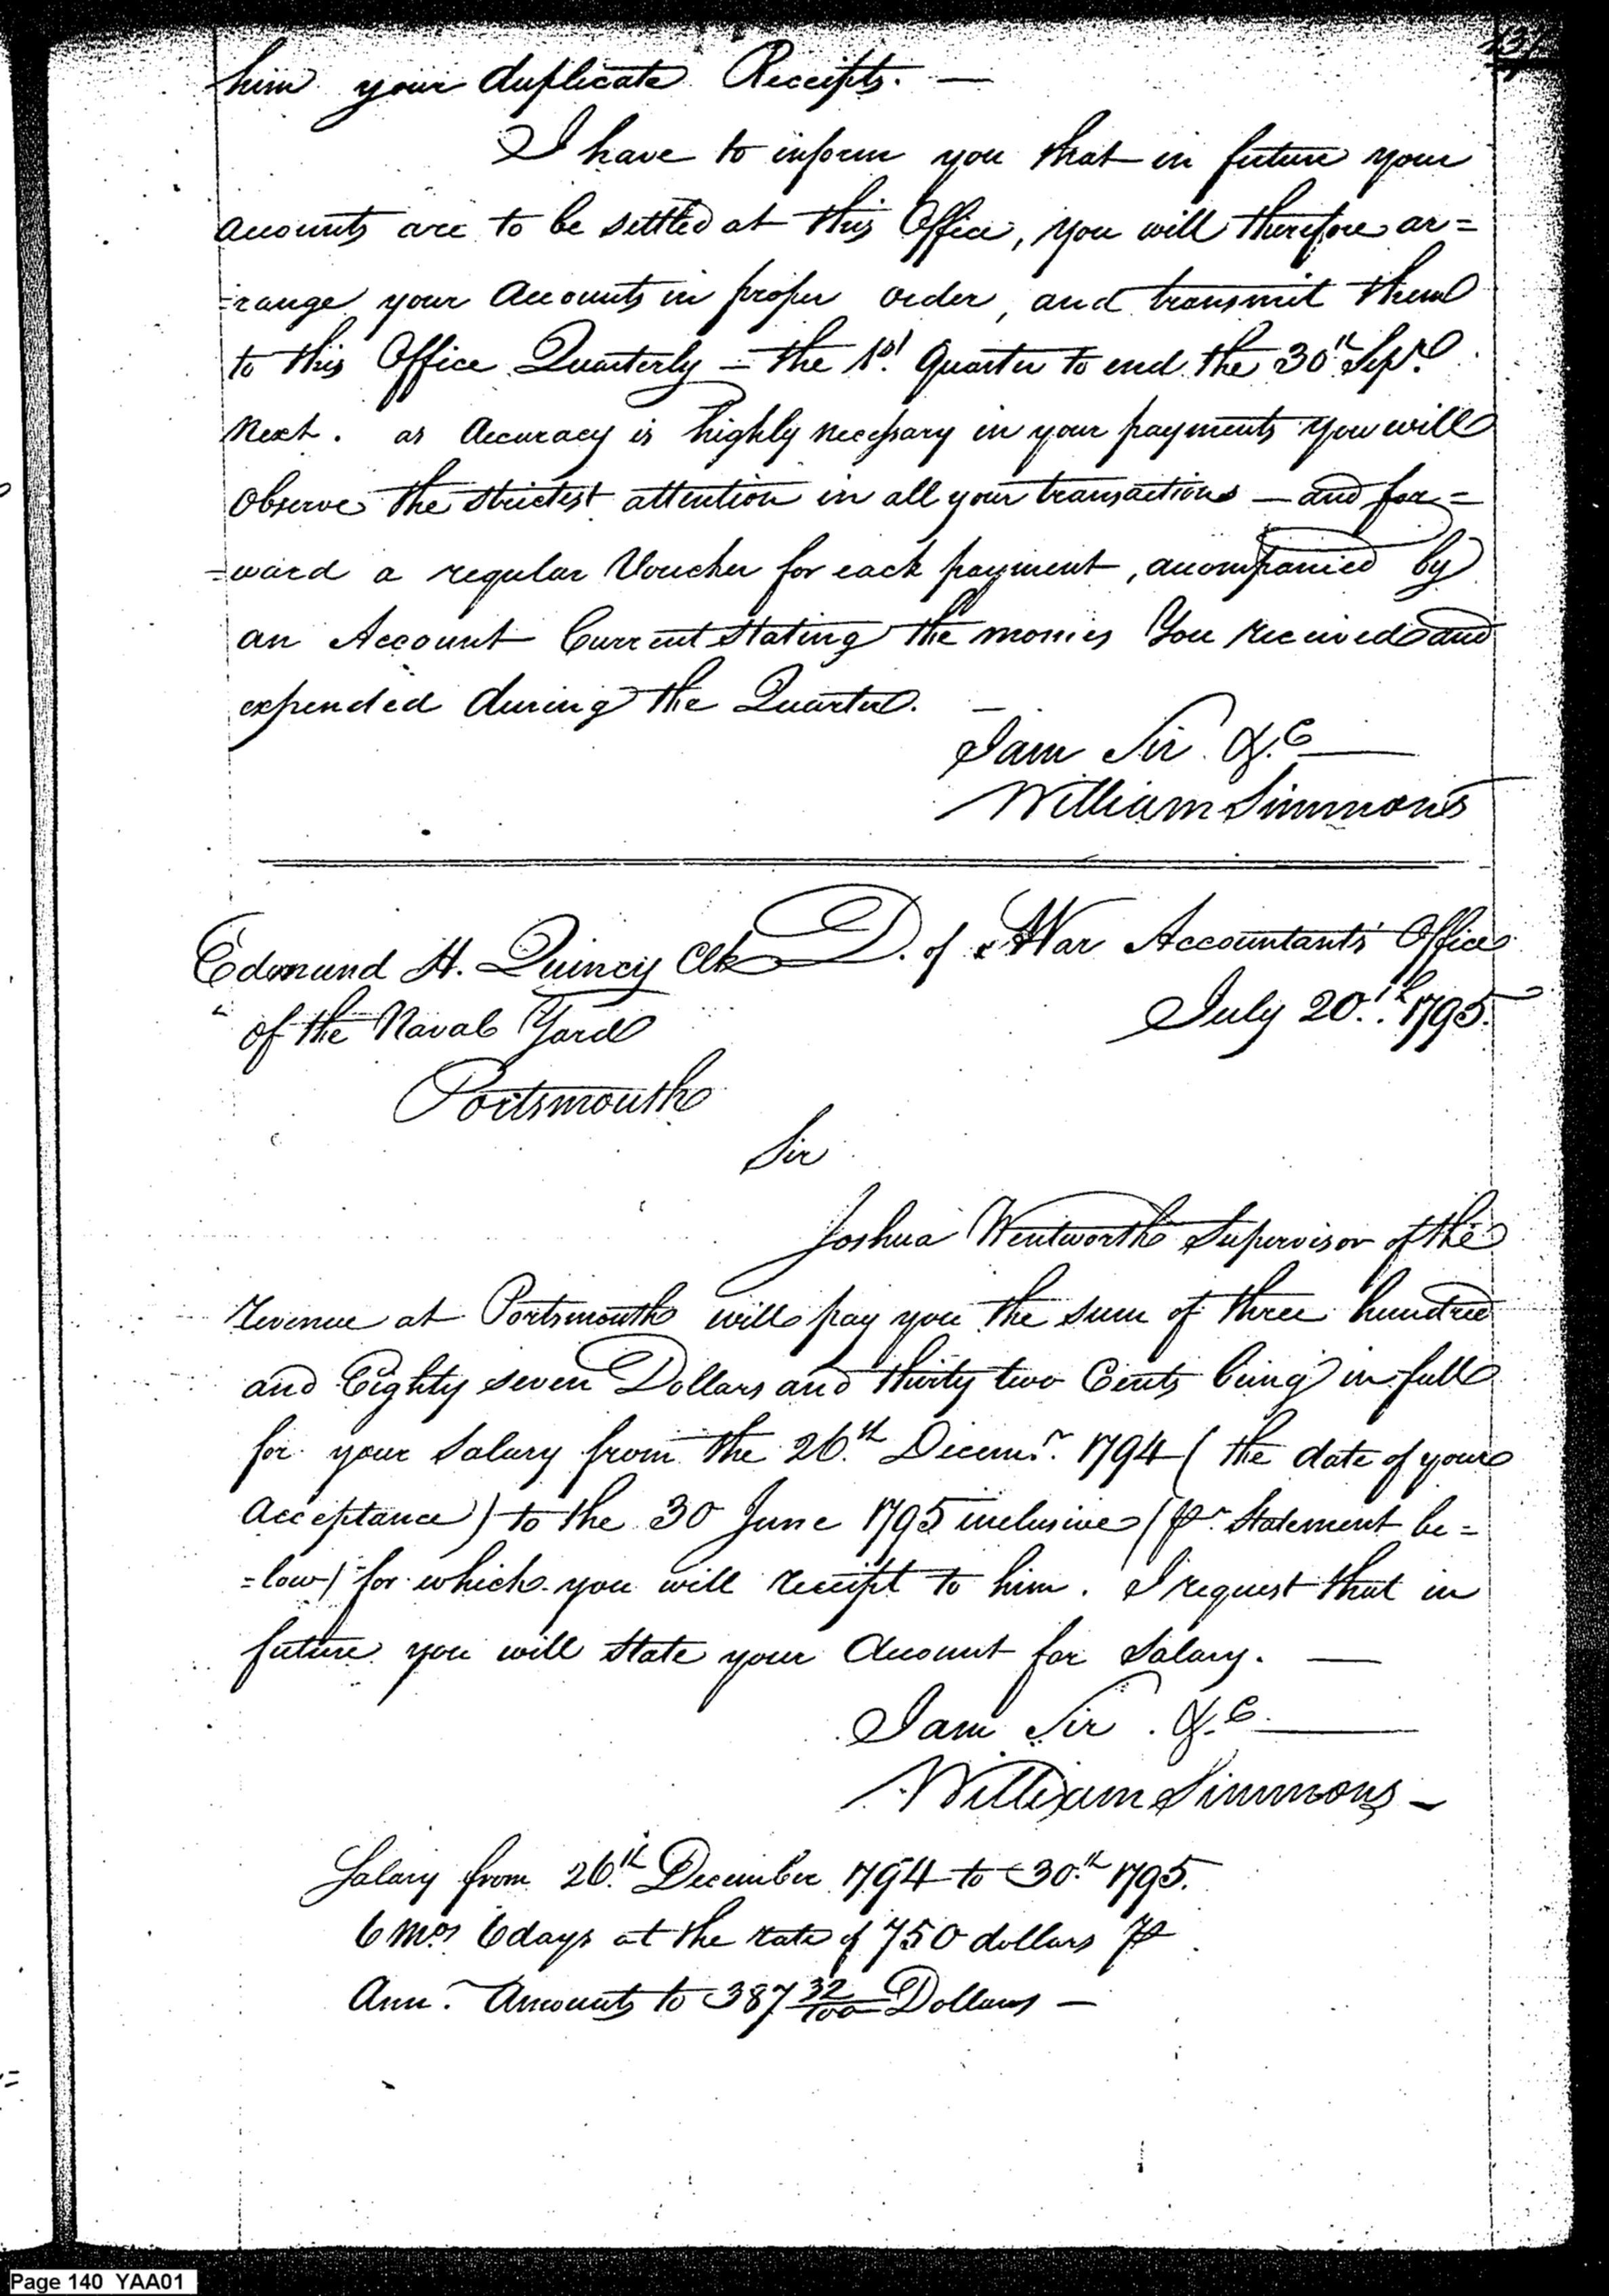 131
him your duplicate Receipts. —
I have to inform you that in future your
accounts are to be settled at this Office, you will therefore ar=
=range your Accounts in proper order, and transmit them
to this Office Quarterly – the 1st. Quarter to end the 30th Sepr.
Next. as Accuracy is highly necessary in your payments you will
Observe the strictest attention in all your transactions – and for=
=ward a regular Voucher for each payment, accompanied by
an Account Current stating the monies You received and
expended during the Quarter. —
I am Sir. &.c
William Simmons
Edmund H. Quincy Clk D. of War Accountants Office
of the Naval Yard July 20.th 1795.
Portsmouth
Sir
Joshua Wentworth Supervisor of the
revenue at Portsmouth will pay you the sum of three hundred
and Eighty seven Dollars and thirty two Cents being in full
for your Salary from the 26.th Decemr. 1794 ( the date of your
Acceptance ) to the 30 June 1795 inclusive ( pr. Statement be=
=low) for which you will receipt to him. I request that in
future you will state your Account for Salary. —
I am Sir. &.c.
William Simmons –
Salary from 26.th December 1794 to 30.th 1795.
6 Mos 6 days at the rate of 750 dollars p
Ann. Amounts to 387 32/100 Dollars —
Page 140 YAA01